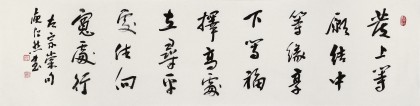 發上等
願結中
等緣享
下等福
擇高處
立尋平
處住向
寬處行
左宗棠句
書